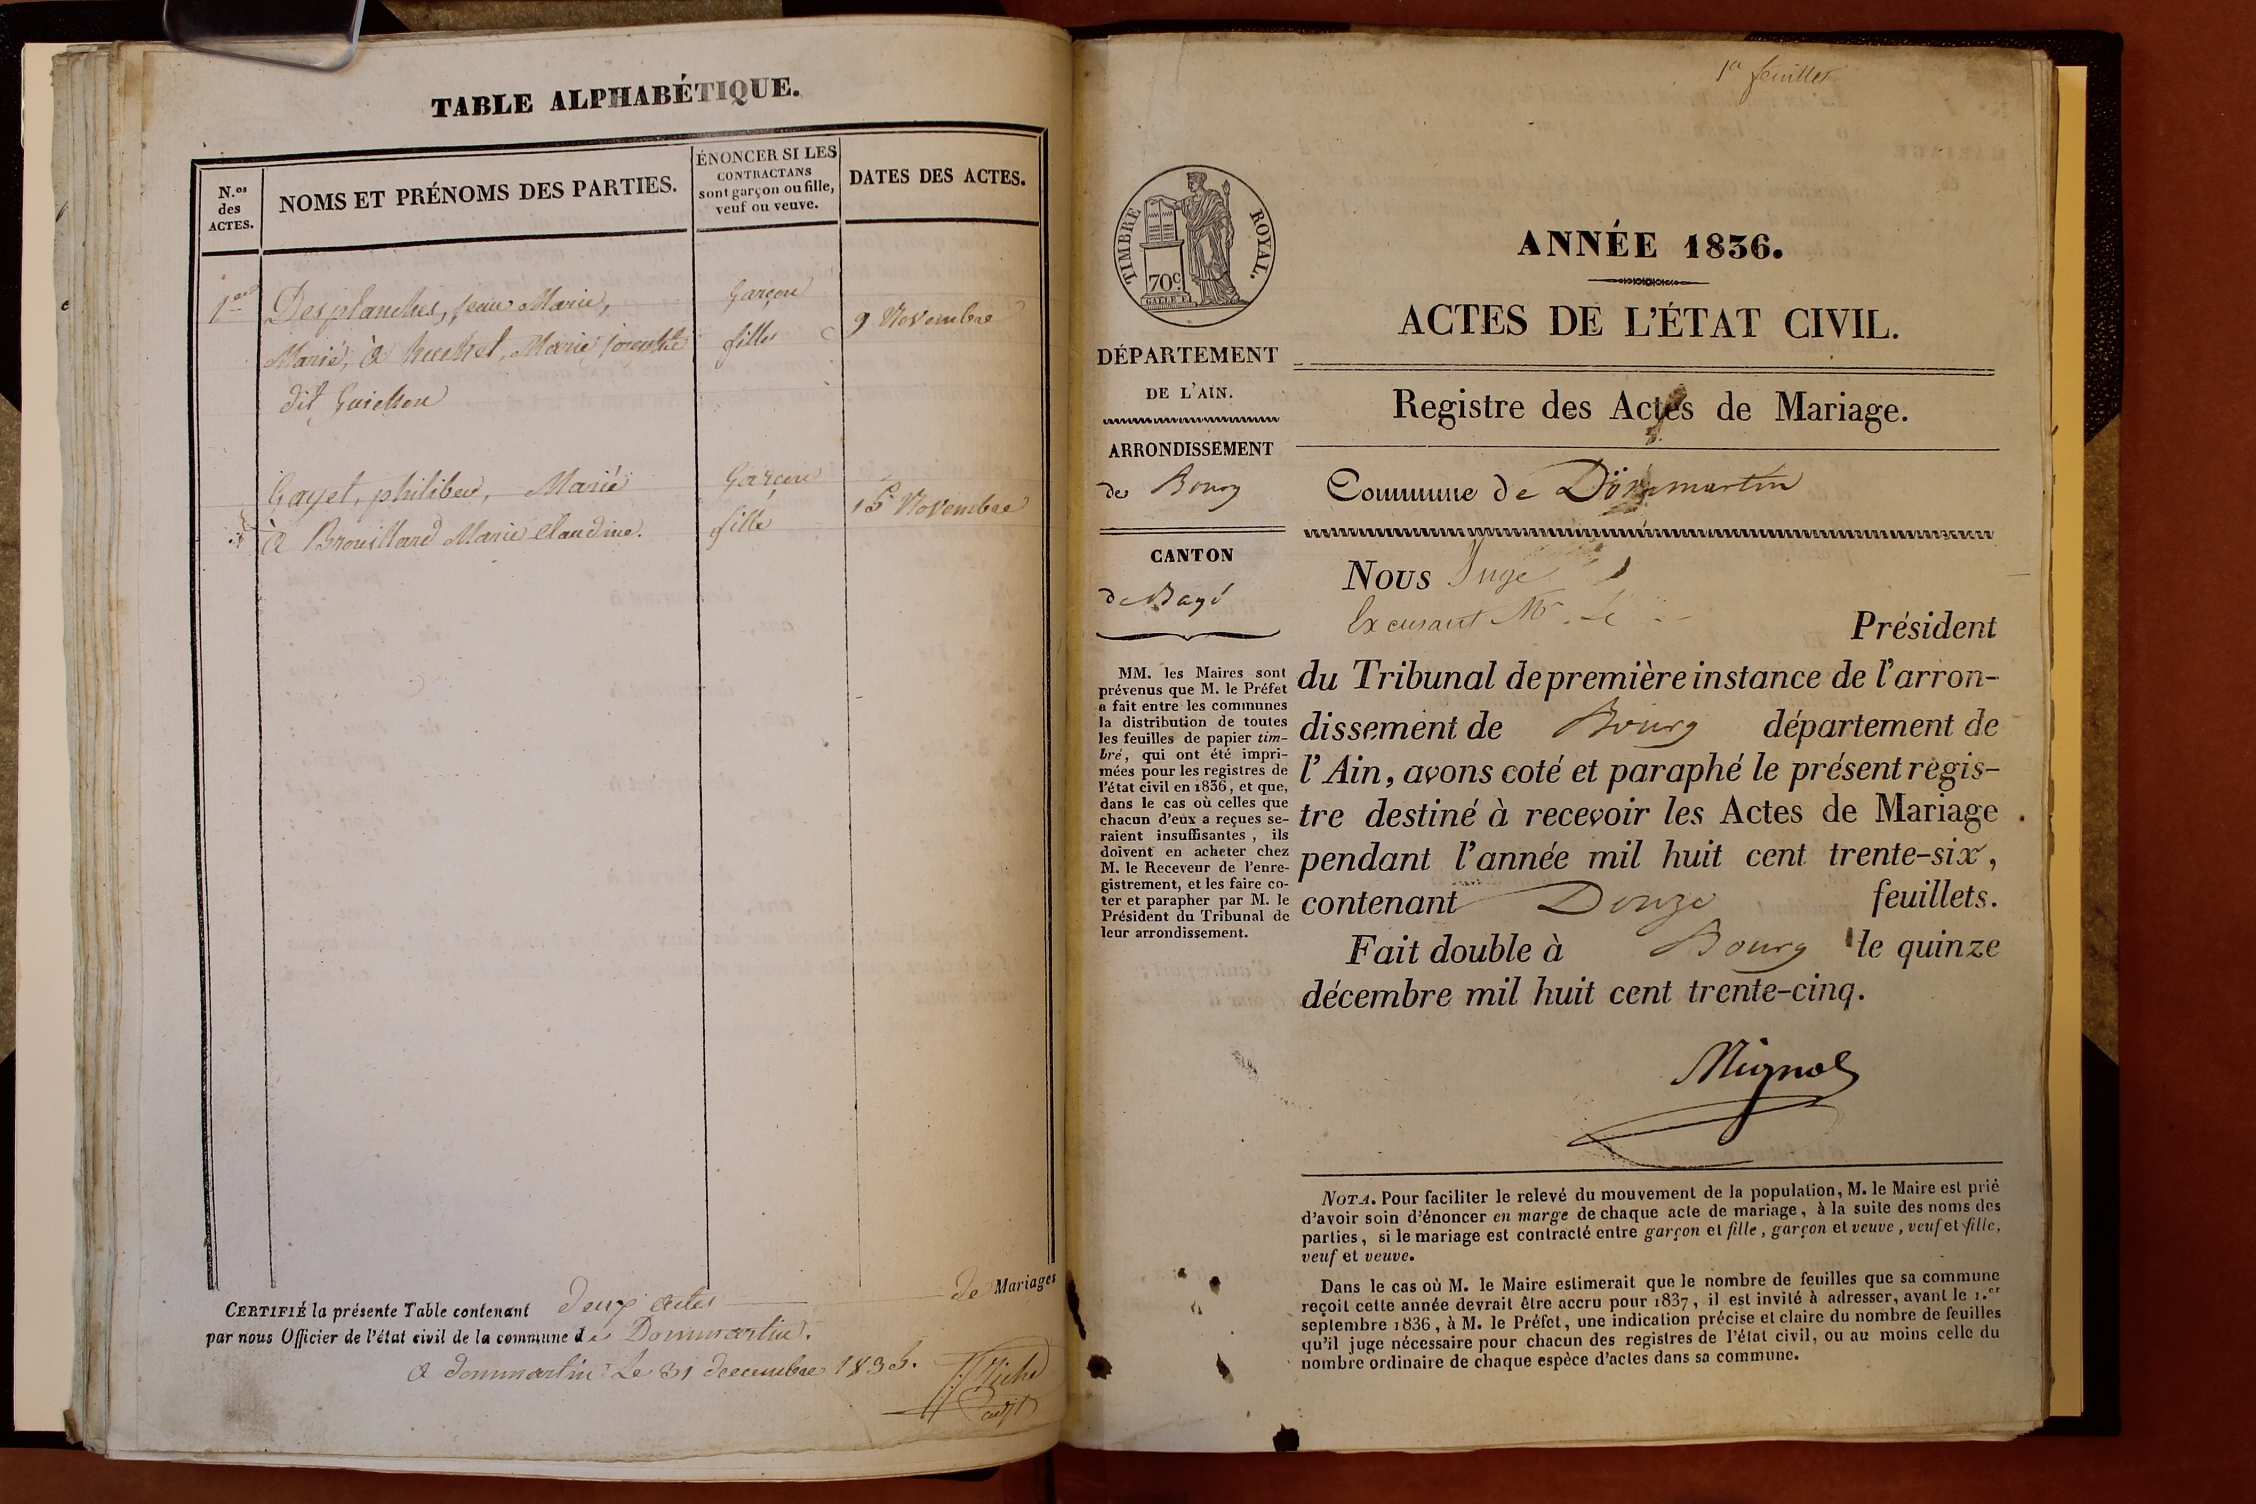 TABLE ALPHABÉTIQUE.
N.os
des
ACTES.
NOMS ET PRÉNOMS DES PARTIES.
ÉNONCER SI LES
CONTRACTANS
sont garçon ou fille,
veuf ou veuve.
DATES DES ACTES.
1er Desplanches, jean Marie, Garçon
Marié, à Marie fille 9 Novembre
dit Guichon
Gayet, philibert, Marié Garçon
à Brouillard Marie Claudine. fille Novembre
CERTIFIÉ la présente Table contenant deux actes de Mariages
par nous Officier de l'état civil de la commune de Dommartin.
a dommartin Le 31 decembre 1835.
1er feuillet
TIMBRE ROYAL.
70c.
DÉPARTEMENT
DE L'AIN.
ARRONDISSEMENT
de Bourg
CANTON
de Bagé
MM. les Maires sont
prévenus que M. le Préfet
a fait entre les communes
la distribution de toutes
les feuilles de papier tim-
bré, qui ont été impri-
mées pour les registres de
l'état civil en 1836, et que,
dans le cas où celles que
chacun d'eux a reçues se-
raient insuffisantes, ils
doivent en acheter chez
M. le Receveur de l'enre-
gistrement, et les faire co-
ter et parapher par M. le
Président du Tribunal de
leur arrondissement.
ANNÉE 1836.
ACTES DE L'ÉTAT CIVIL.
Registre des Actes de Mariage.
Commune de Dommartin
Nous Juge
Excusant Mr. Le
Président
du Tribunal de première instance de l'arron-
dissement de Bourg département de
l'Ain, avons coté et paraphé le présent régis-
tre destiné à recevoir les Actes de Mariage
pendant l'année mil huit cent trente-six,
contenant Douze feuillets.
Fait double à Bourg le quinze
décembre mil huit cent trente-cinq.
Mignol
NOTA. Pour faciliter le relevé du mouvement de la population, M. le Maire est prié
d'avoir soin d'énoncer en marge de chaque acte de mariage, à la suite des noms des
parties, si le mariage est contracté entre garçon et fille, garçon et veuve, veuf et fille,
veuf et veuve.
Dans le cas où M. le Maire estimerait que le nombre de feuilles que sa commune
reçoit cette année devrait être accru pour 1837, il est invité à adresser, avant le 1.er
septembre 1836, à M. le Préfet, une indication précise et claire du nombre de feuilles
qu'il juge nécessaire pour chacun des registres de l'état civil, ou au moins celle du
nombre ordinaire de chaque espèce d'actes dans sa commune.